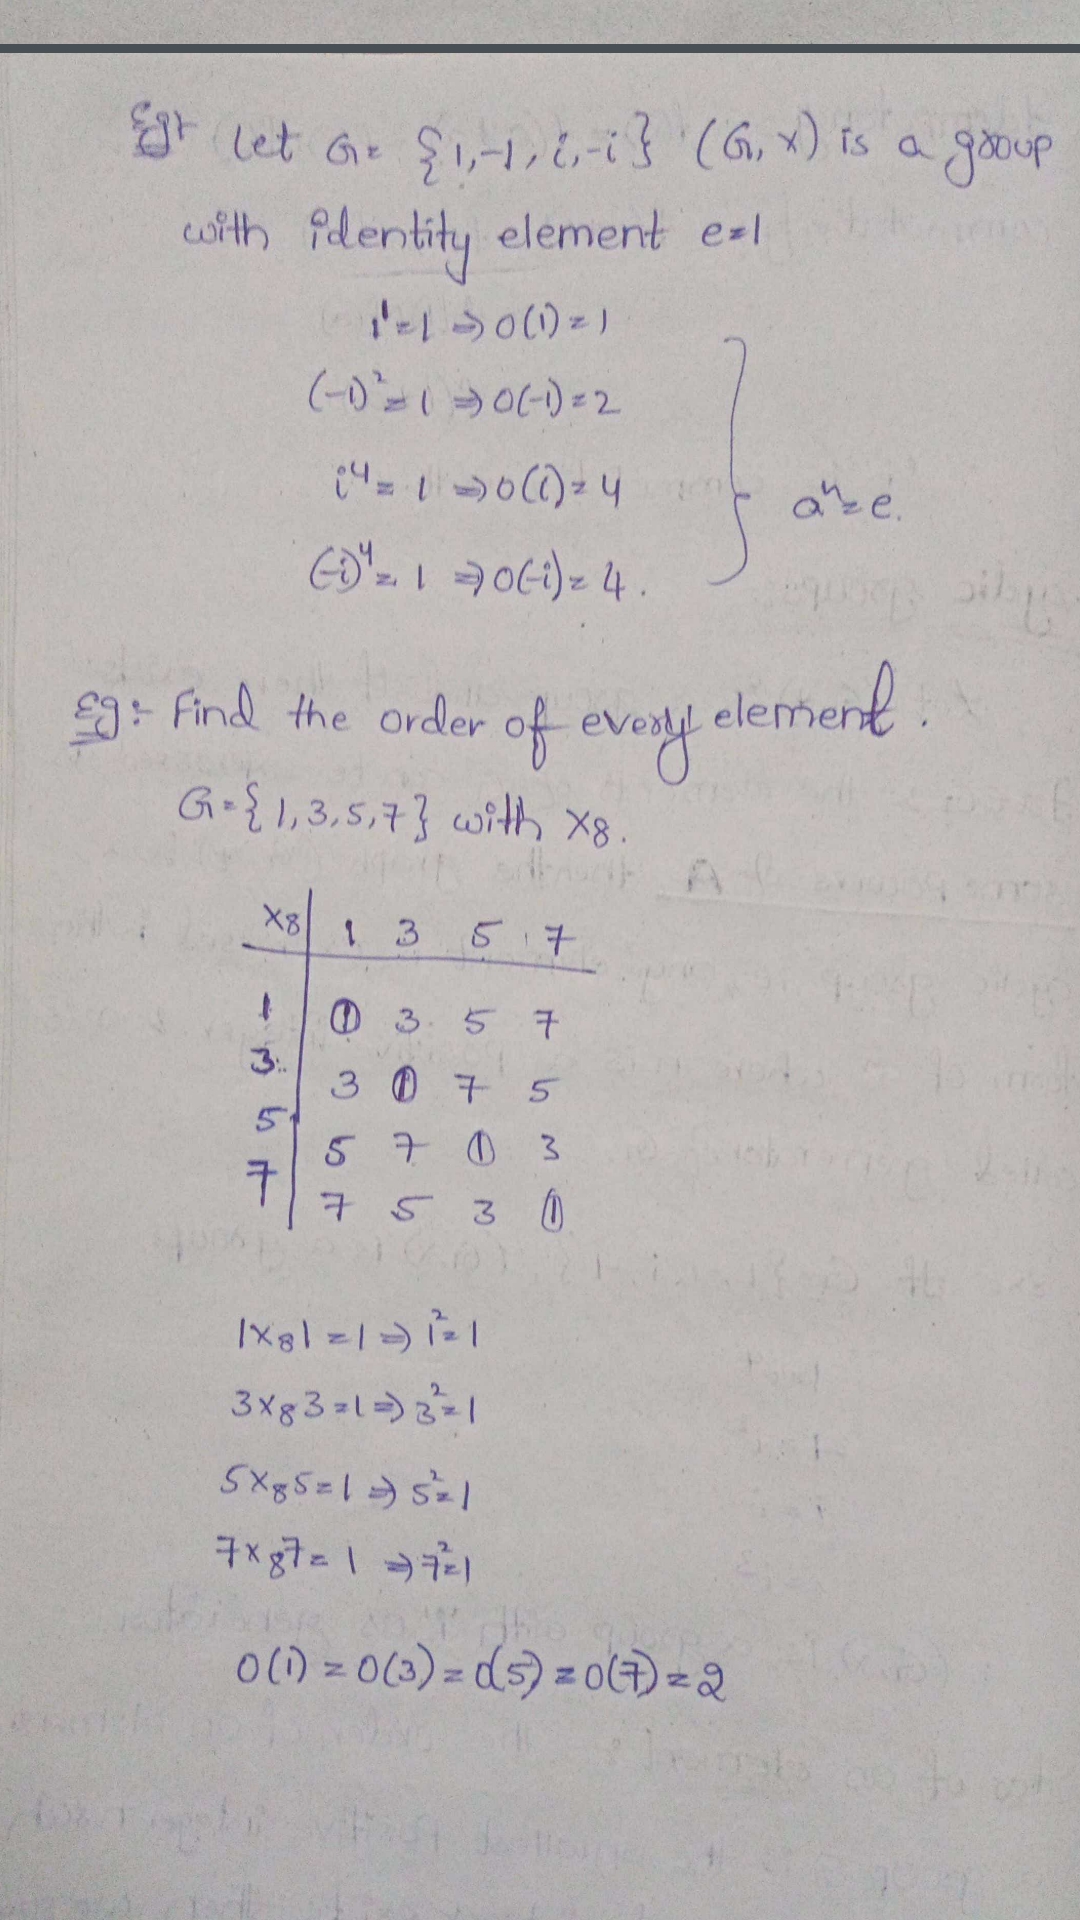 Eg:- Let G = {1,-1, i,-i} (G, x) is a group
with identity element e=1
1¹=1 ⇒ O(1) = 1
(-1)² = 1 ⇒ O(-1) = 2
i⁴ = 1 ⇒ O(i) = 4
aⁿ = e.
(-i)⁴ = 1 ⇒ O(-i) = 4.
Eg:- Find the order of every element.
G={1,3,5,7} with ×₈.
×₈ 1 3 5 7
1 1 3 5 7
3 3 1 7 5
5 5 7 1 3
7 7 5 3 1
1×₈1 = 1 ⇒ 1²=1
3×₈3 = 1 ⇒ 3²=1
5×₈5 = 1 ⇒ 5²=1
7×₈7 = 1 ⇒ 7²=1
O(1) = O(3) = O(5) = O(7) = 2